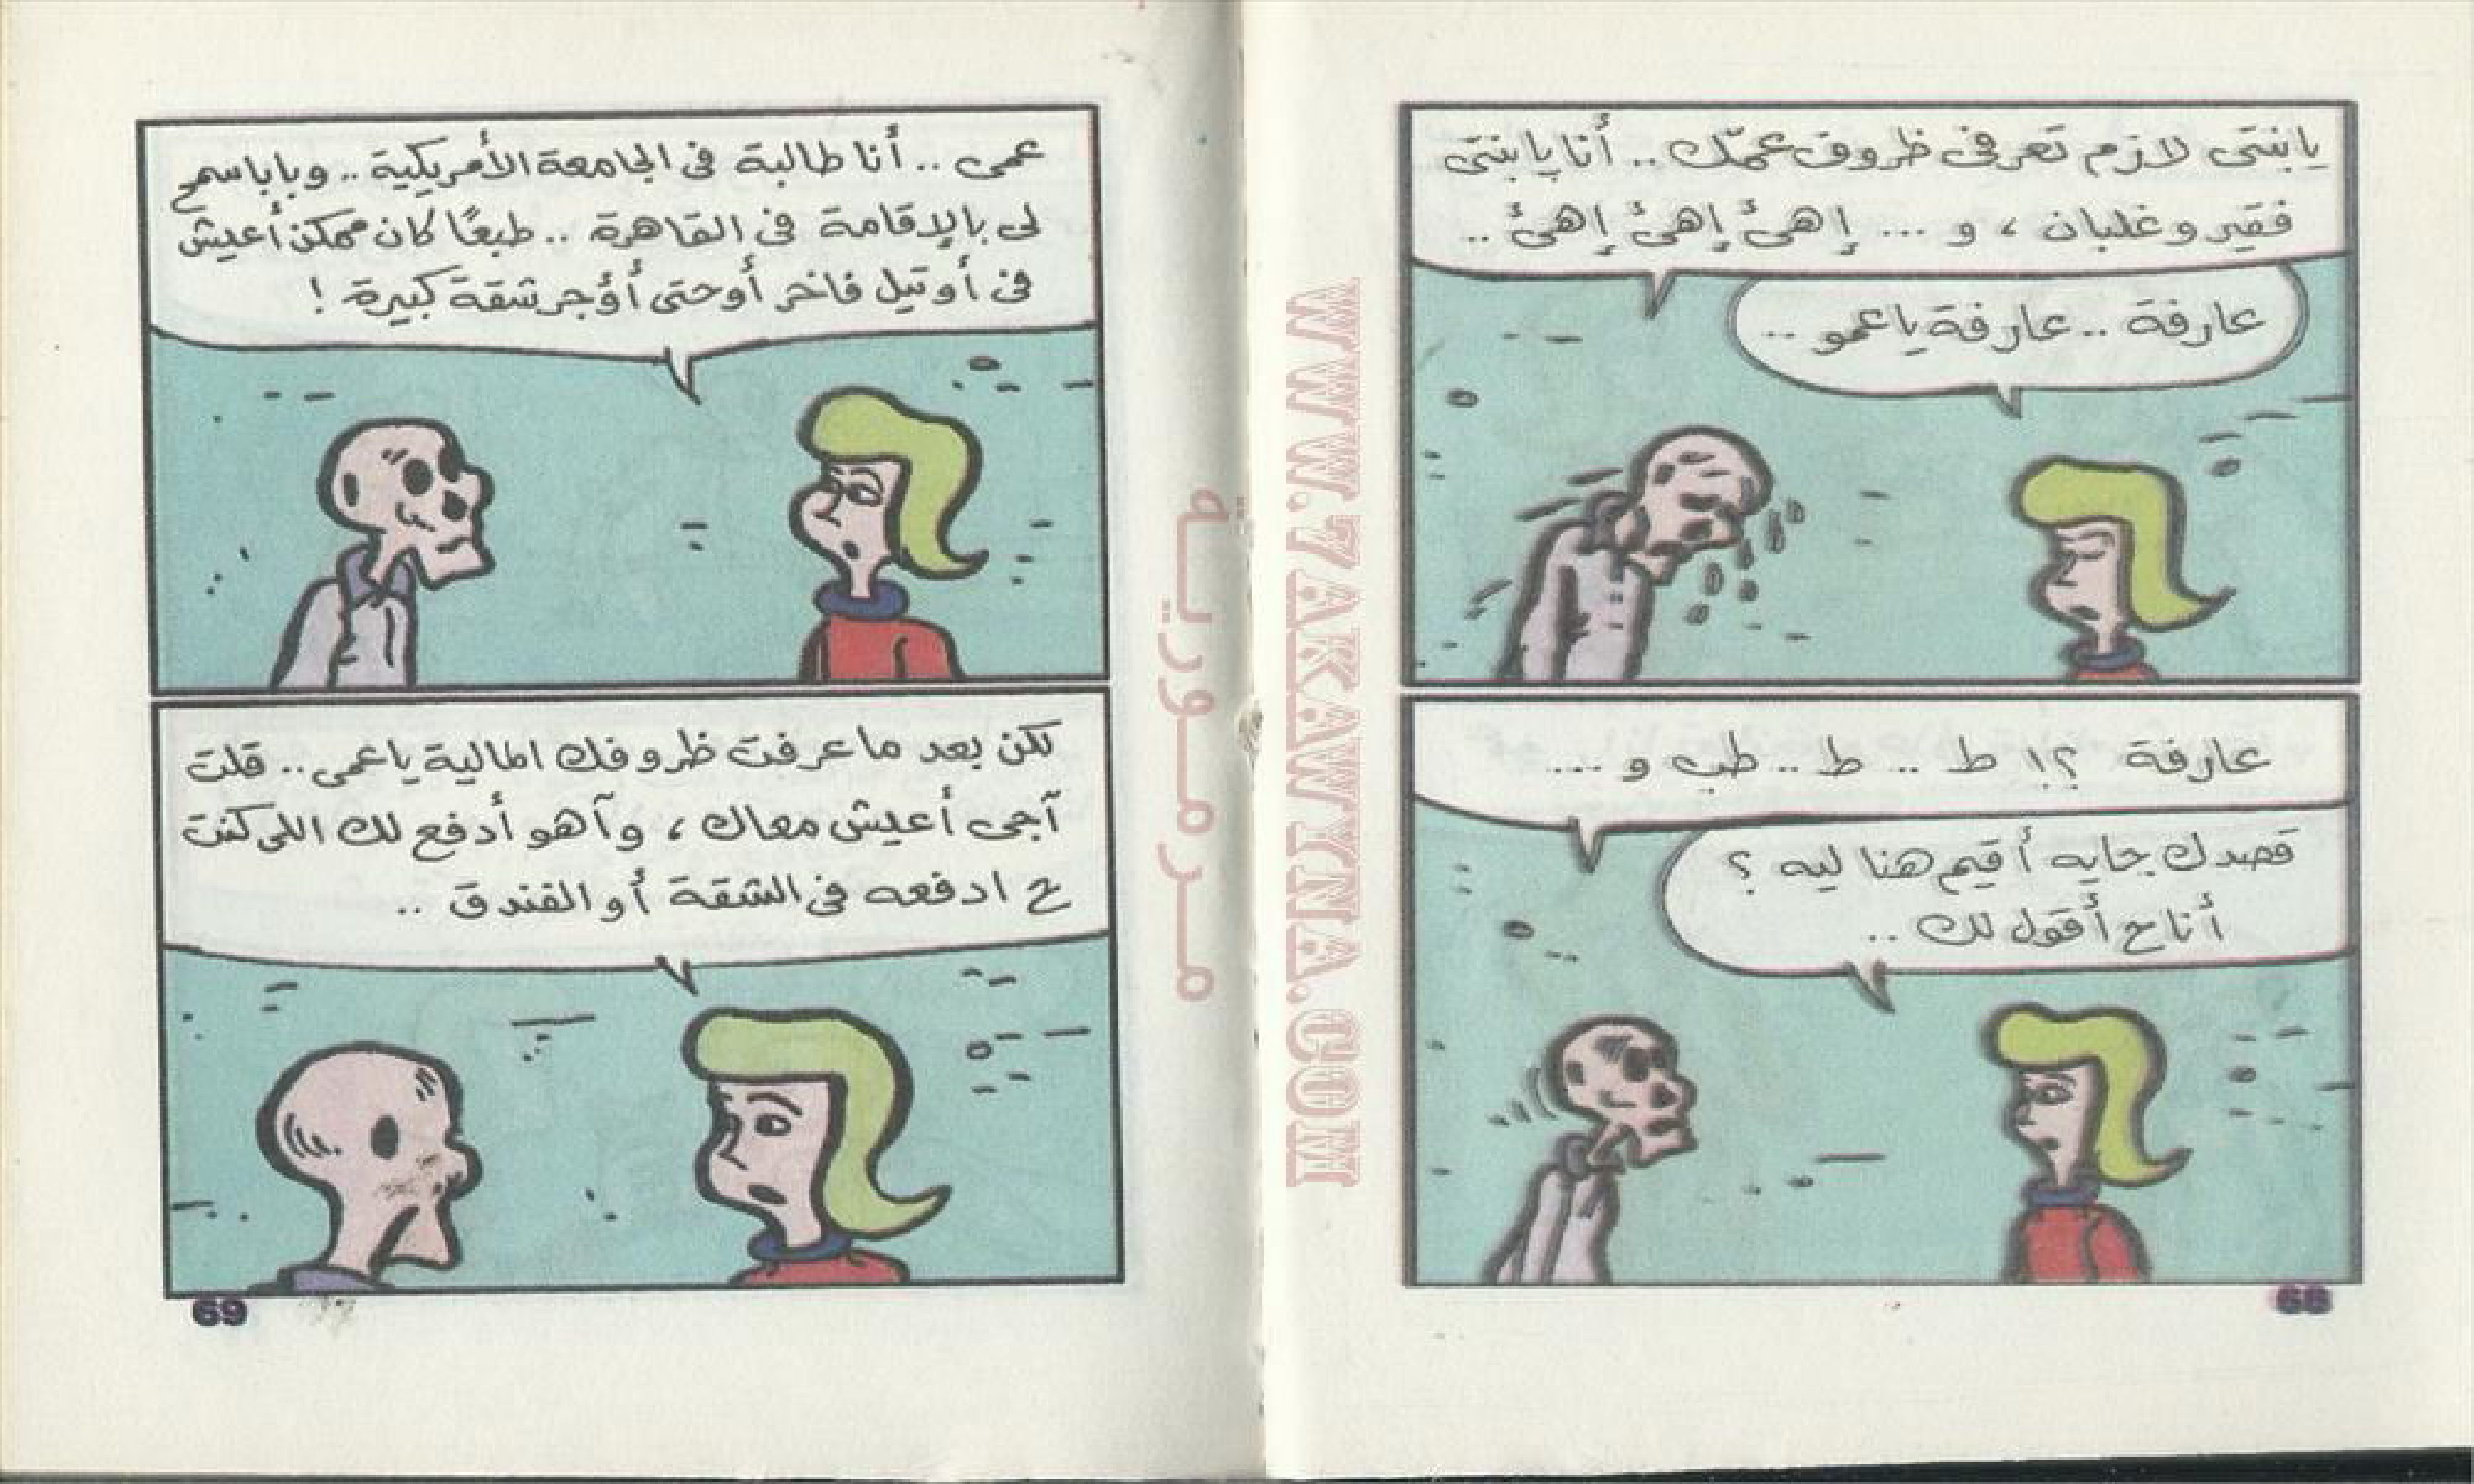 يا بنتى لازم تعرفى ظروف عمّك .. أنا يا بنتى
فقير وغلبان ، و ... إهئ إهئ إهئ ..
عارفة .. عارفة ياعمو ..
عارفة ؟! ط .. ط .. طب و ...
قصدك جايه أقيم هنا ليه ؟
أنا ح أقول لك ..
68
عمى .. أنا طالبة فى الجامعة الأمريكية .. وبابا سمح
لى بالإقامة فى القاهرة .. طبعًا كان ممكن أعيش
فى أوتيل فاخر أو حتى أؤجر شقة كبيرة !
لكن بعد ما عرفت ظروفك المالية ياعمى .. قلت
آجى أعيش معاك ، وآهو أدفع لك اللى كنت
ح ادفعه فى الشقة أو الفندق ..
69
WWW.7AKAWINA.COM
مرمورية